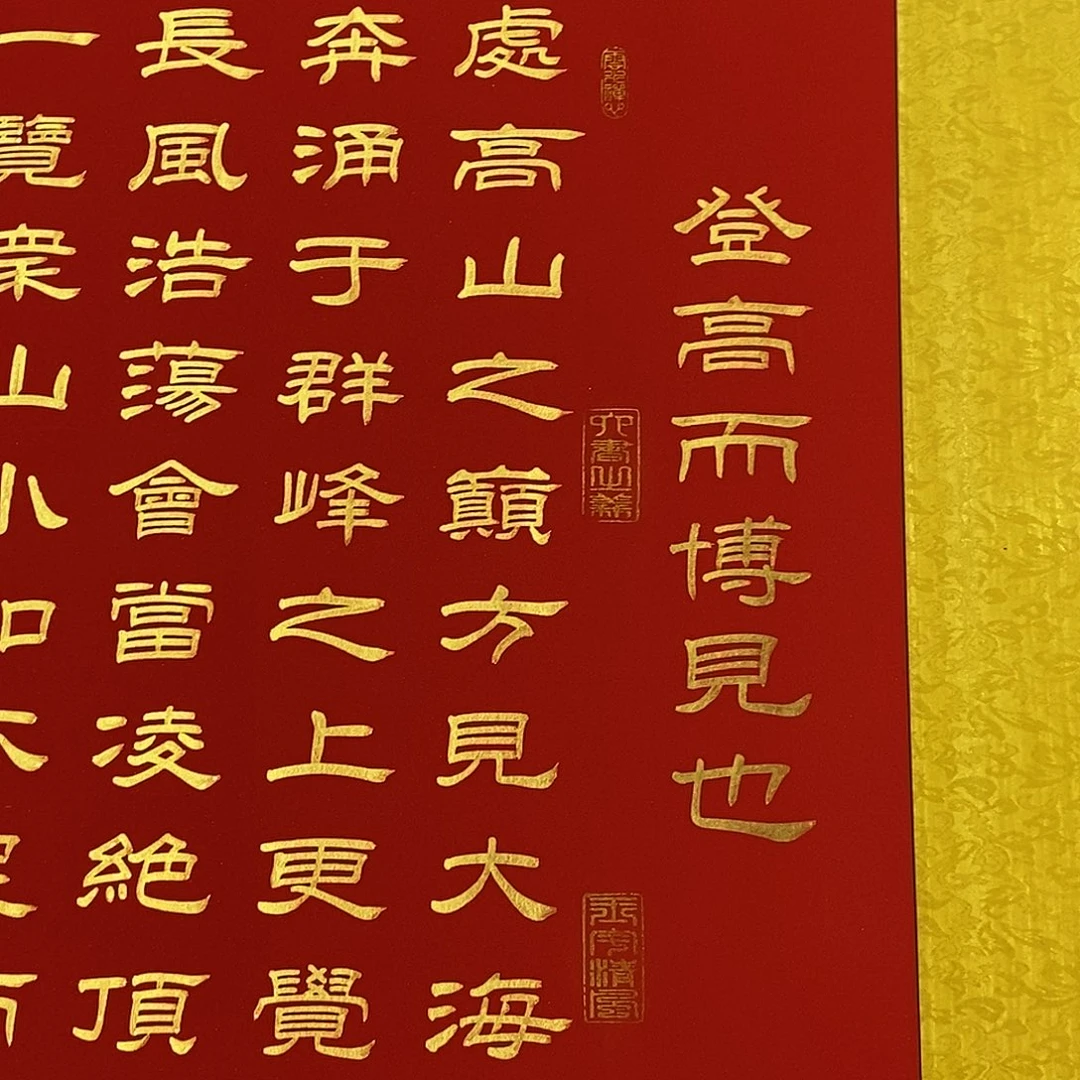 登高而博見也
處高山之巔方見大海
奔涌于群峰之上更覺
長風浩蕩會當凌絕頂
一覽衆山小